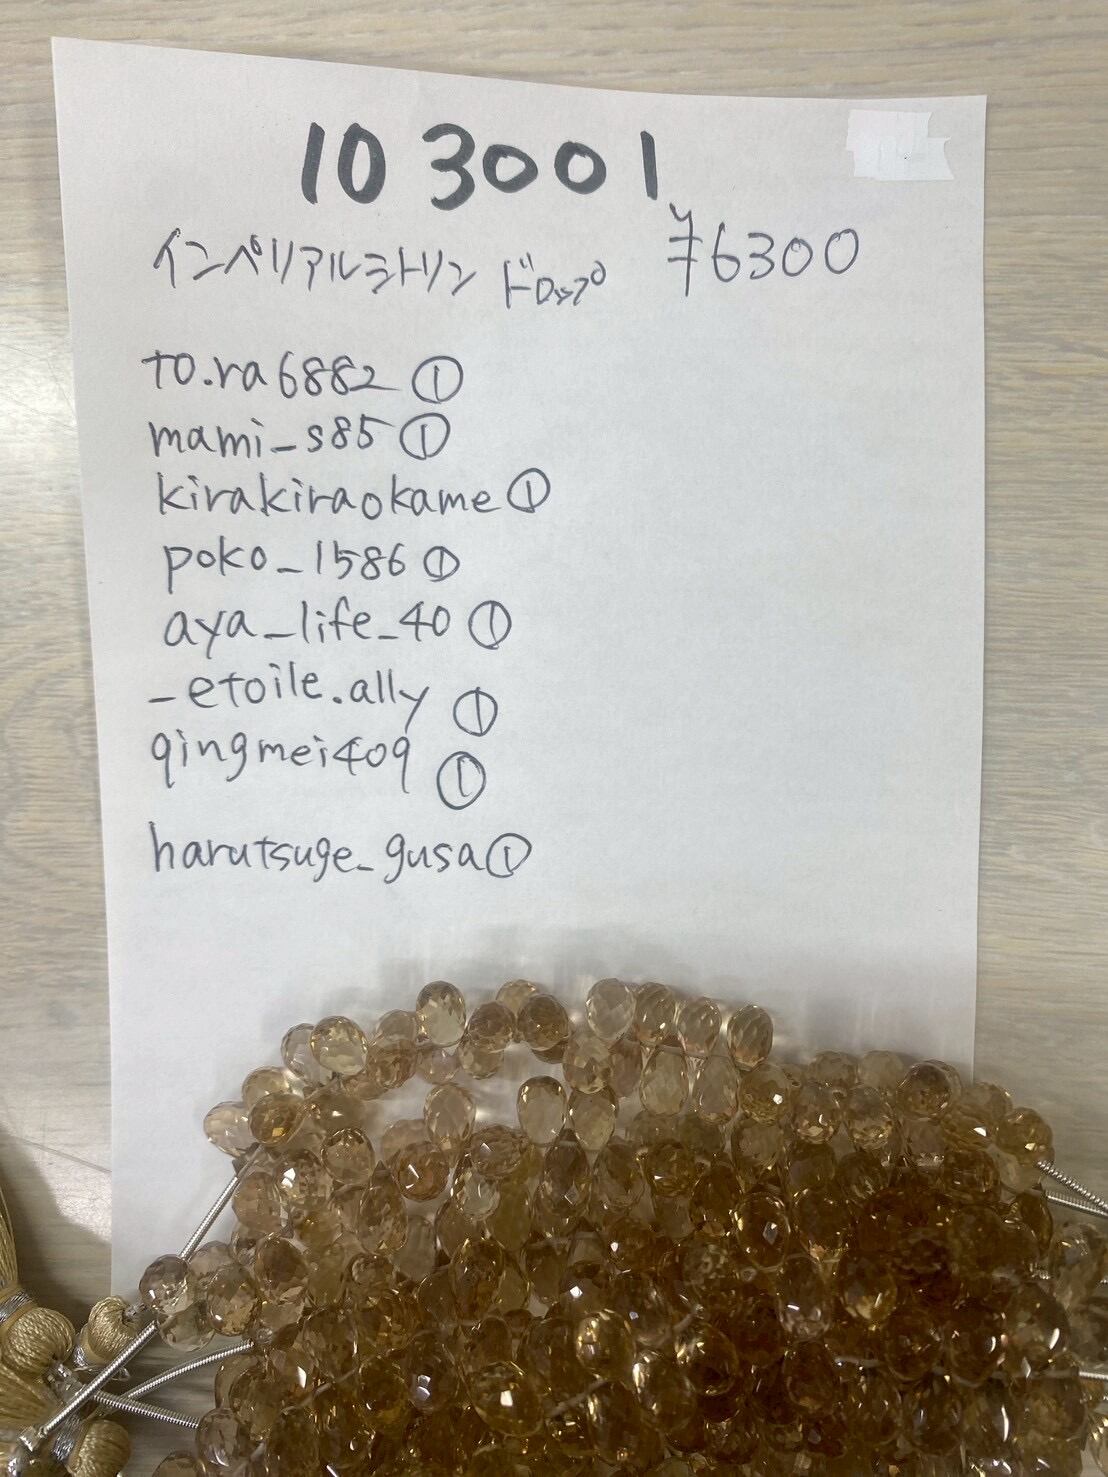 103001
インペリアルシトリン ドロップ ¥6300
to.ra6882 ①
mami_s85 ①
kirakiraokame ①
poko_1586 ①
aya_life_40 ①
_etoile.ally ①
qingmei409 ①
harutsuge_gusa ①